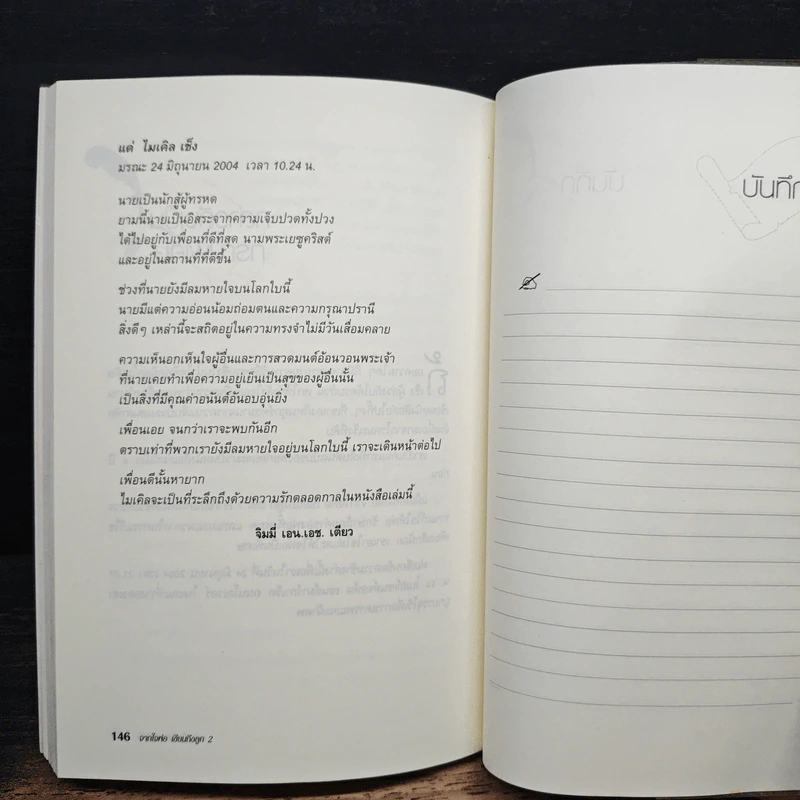 แด่ ไมเคิล เช็ง
มรณะ 24 มิถุนายน 2004 เวลา 10.24 น.
นายเป็นนักสู้ผู้ทรหด
ยามนี้นายเป็นอิสระจากความเจ็บปวดทั้งปวง
ได้ไปอยู่กับเพื่อนที่ดีที่สุด นามพระเยซูคริสต์
และอยู่ในสถานที่ที่ดีขึ้น
ช่วงที่นายยังมีลมหายใจบนโลกใบนี้
นายมีแต่ความอ่อนน้อมถ่อมตนและความกรุณาปรานี
สิ่งดีๆ เหล่านี้จะสถิตอยู่ในความทรงจำไม่มีวันเสื่อมคลาย
ความเห็นอกเห็นใจผู้อื่นและการสวดมนต์อ้อนวอนพระเจ้า
ที่นายเคยทำเพื่อความอยู่เย็นเป็นสุขของผู้อื่นนั้น
เป็นสิ่งที่มีคุณค่าอนันต์อันอบอุ่นยิ่ง
เพื่อนเอย จนกว่าเราจะพบกันอีก
ตราบเท่าที่พวกเรายังมีลมหายใจอยู่บนโลกใบนี้ เราจะเดินหน้าต่อไป
เพื่อนดีนั้นหายาก
ไมเคิลจะเป็นที่ระลึกถึงด้วยความรักตลอดกาลในหนังสือเล่มนี้
จิมมี่ เอน.เอช. เตียว
146 จากใจพ่อ เขียนถึงลูก 2
บันทึก